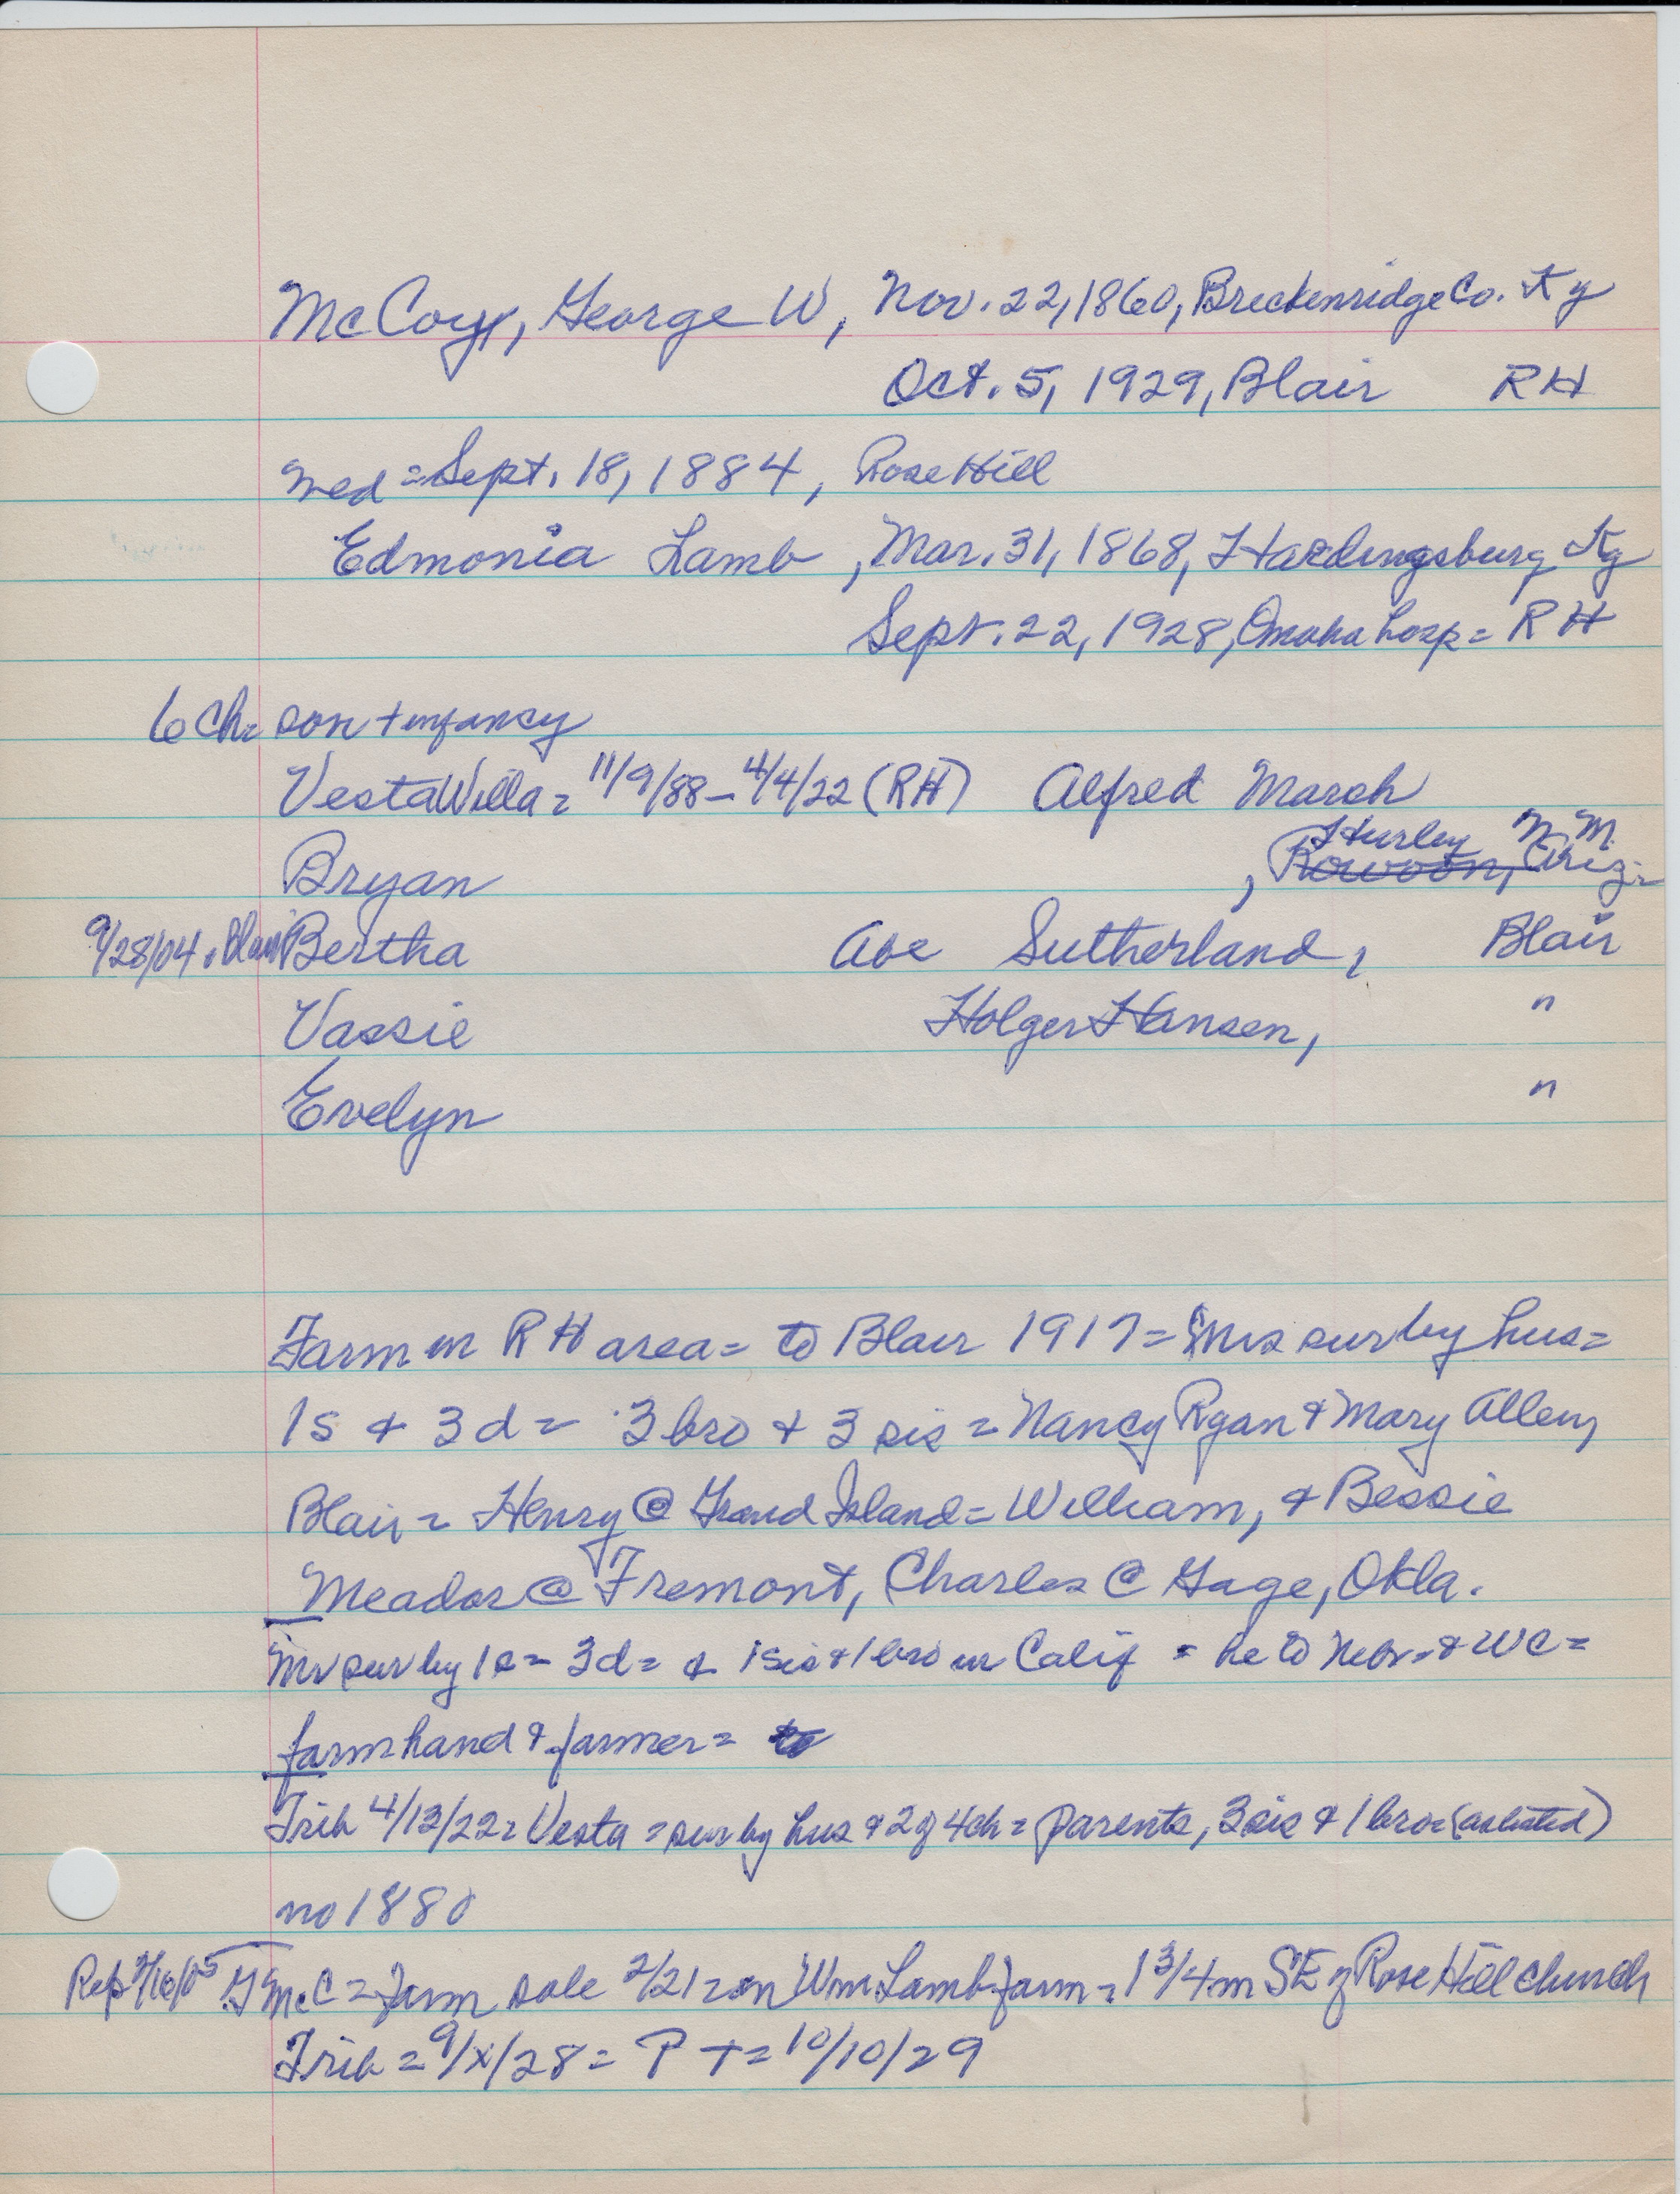 McCoy, George W, Nov. 22, 1860, Breckenridge Co. Ky
Oct. 5, 1929, Blair RH
Wed = Sept. 18, 1884, Rose Hill
Edmonia Lamb, Mar. 31, 1868, Hardingsburg Ky
Sept. 22, 1928, Omaha hosp = RH
6 ch = son + infancy
Vesta Willa = 11/9/88 - 4/4/22 (RH) Alfred March
Hurley N M.
Bryan , Ariz.
9/28/04 Blair Bertha Abe Sutherland, Blair
Vassie Holger Hansen, "
Evelyn "
Farm in RH area = to Blair 1917 = Mrs sur by hus =
1 s & 3 d = 3 bro & 3 sis = Nancy Ryan & Mary Allen,
Blair = Henry @ Grand Island = William, & Bessie
Meador @ Fremont, Charles @ Gage, Okla.
Mr sur by 1 s = 3 d = & 1 sis & 1 bro in Calif = he to Nebr = & WC =
farmhand & farmer =
Trib 4/13/22 = Vesta = sur by hus & 2 of 4 ch = parents, 3 sis & 1 bro = (as listed)
no 1880
Rep G McC = farm sale 2/21 = on Wm Lamb farm = 1 3/4 m SE of Rose Hill church
Trib = 9/x/28 = P T = 10/10/29